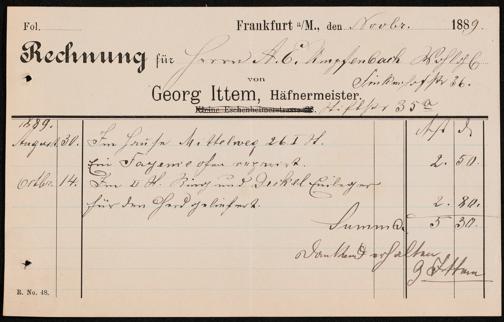 Fol.
Frankfurt a/M., den Novbr. 1889.
Rechnung für Herrn A. C. Umpfenbach
von
Georg Ittem, Häfnermeister.
Kleine Eschenheimerstrasse 35a
1889.
August 30. Im Hause Mittelweg 26 I St.
Ein Fayenceofen reparirt. 2. 50.
Octbr. 14. Im II St. Ring und Deckel Einleger
für den Herd geliefert. 2. 80.
Summa 5 30.
Dankend erhalten
G Ittem
R. No. 48.